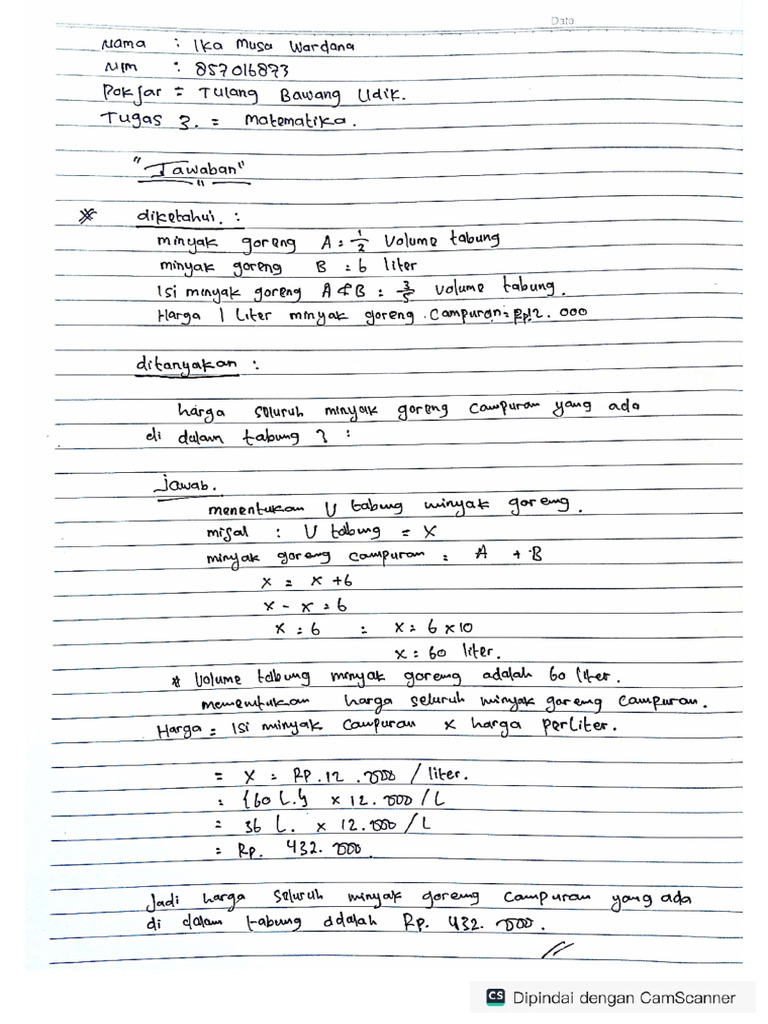 Date
Nama : Ika Musa Wardana
Nim : 857016873
Pokjar = Tulang Bawang Udik.
Tugas 3. = Matematika.
"Jawaban"
* diketahui. :
minyak goreng A = 1/2 Volume tabung
minyak goreng B : 6 liter
Isi minyak goreng A & B : 3/5 Volume tabung.
Harga 1 Liter minyak goreng Campuran = Rp12.000
ditanyakan :
harga seluruh minyak goreng campuran yang ada
di dalam tabung ? :
jawab.
menentukan V tabung minyak goreng.
misal : V tabung = x
minyak goreng campuran : A + B
x = x +6
x - x = 6
x : 6 : x = 6 x 10
x = 60 liter.
* Volume tabung minyak goreng adalah 60 liter.
menentukan harga seluruh minyak goreng campuran.
Harga = Isi minyak campuran x harga perliter.
= x = RP.12.000 / liter.
= {60 L.} x 12.000 / L
= 36 L. x 12.000 / L
= Rp. 432.000
Jadi harga seluruh minyak goreng campuran yang ada
di dalam tabung adalah Rp. 432.000.
CS Dipindai dengan CamScanner